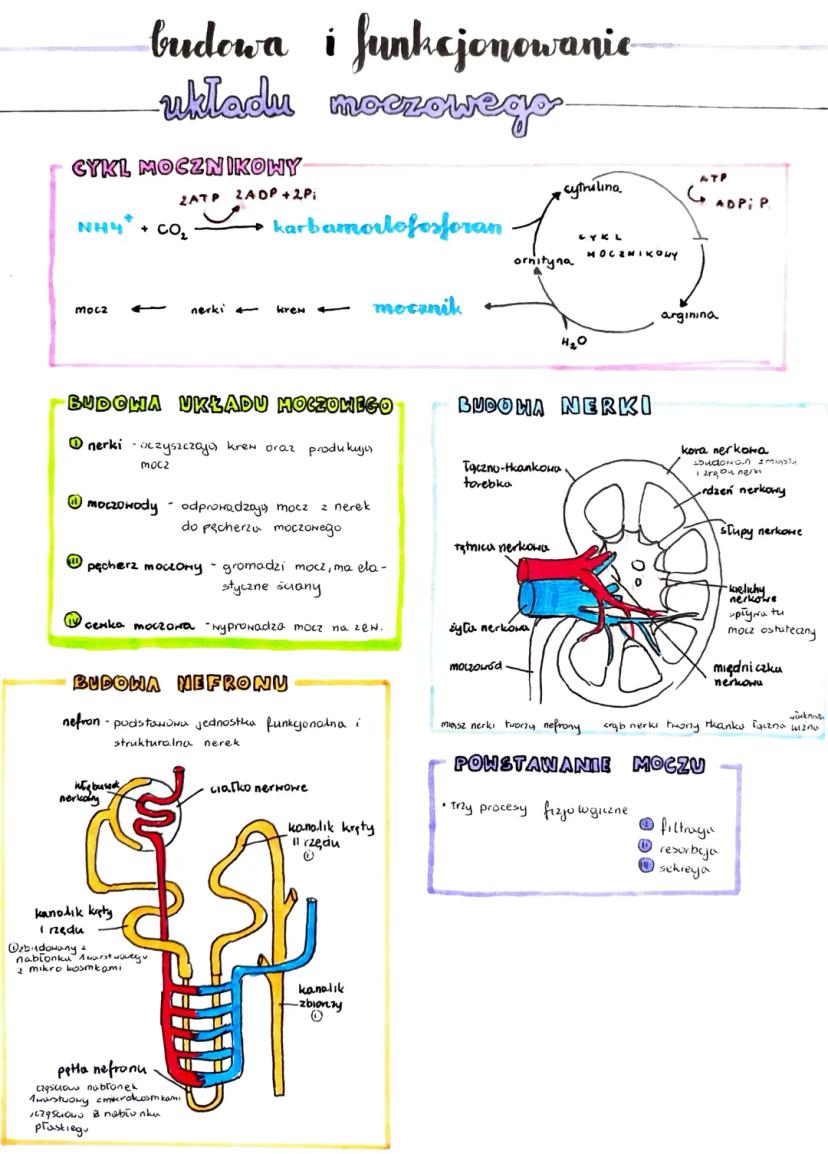 budowa i funkcjonowanie
układu moczowego
CYKL MOCZNIKOWY
2ATP 2ADP + 2Pi
NH4+ + CO2 karbamoilofosforan
cytrulina
ATP
ADP i P.
CYKL
MOCZNIKOWY
ornityna
arginina
H2O
mocz nerki krew mocznik
BUDOWA UKŁADU MOCZOWEGO
I nerki - oczyszczają krew oraz produkują
mocz
II moczowody - odprowadzają mocz z nerek
do pęcherza moczowego
III pęcherz moczowy - gromadzi mocz, ma ela-
styczne ściany
IV cewka moczowa - wyprowadza mocz na zew.
BUDOWA NERKI
łączno-tkankowa
torebka
kora nerkowa
zbudowana z miąższu
i zrębu nerki
rdzeń nerkowy
słupy nerkowe
tętnica nerkowa
kielichy
nerkowe
spływa tu
mocz ostateczny
żyła nerkowa
moczowód
miedniczka
nerkowa
miąsz nerki tworzą nefrony zrąb nerki tworzy tkanka łączna
BUDOWA NEFRONU
nefron - podstawowa jednostka funkcjonalna i
strukturalna nerek
kłębuszek
nerkowy
ciałko nerwowe
kanalik kręty
II rzędu
I
kanalik kręty
I rzędu
I zbudowany z
nabłonka 1warstwowego
z mikrokosmkami
kanalik
zbiorczy
I
pętla nefronu
częściowo nabłonek
1warstwowy z mikrokosmkami
i częściowo z nabłonka
płaskiego
POWSTAWANIE MOCZU
• trzy procesy fizjologiczne
I filtracja
II resorbcja
III sekrecja